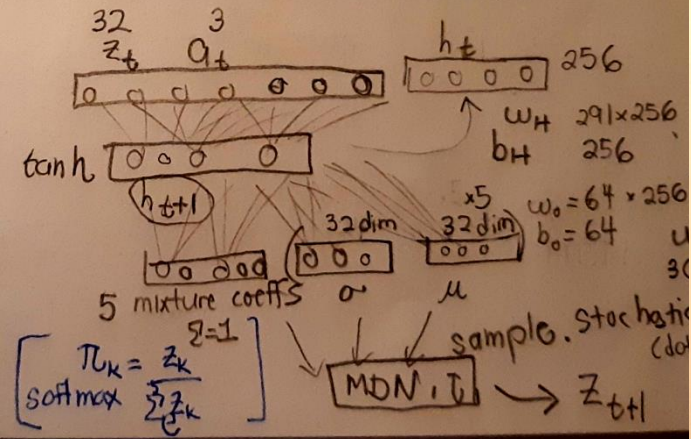 32
3
z_t
a_t
h_t
256
W_H 291×256
b_H 256
tanh
h_t+1
×5
32 dim
32 dim
w_o = 64 × 256
b_o = 64
5 mixture coeffs
σ
μ
Σ=1
π_k = z_k
softmax Σ z_k
sample. stochastic
MDN, τ
z_t+1